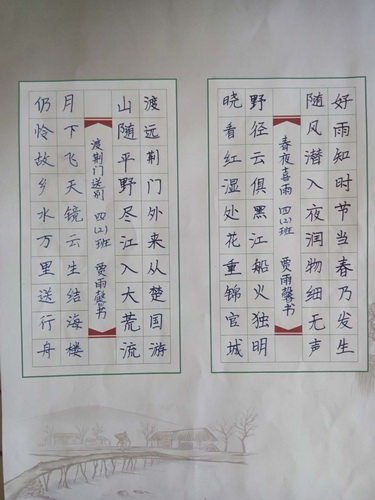 好雨知时节当春乃发生
随风潜入夜润物细无声
春夜喜雨 四(2)班 贾雨馨书
野径云俱黑江船火独明
晓看红湿处花重锦官城
渡远荆门外来从楚国游
山随平野尽江入大荒流
渡荆门送别 四(2)班 贾雨馨书
月下飞天镜云生结海楼
仍怜故乡水万里送行舟